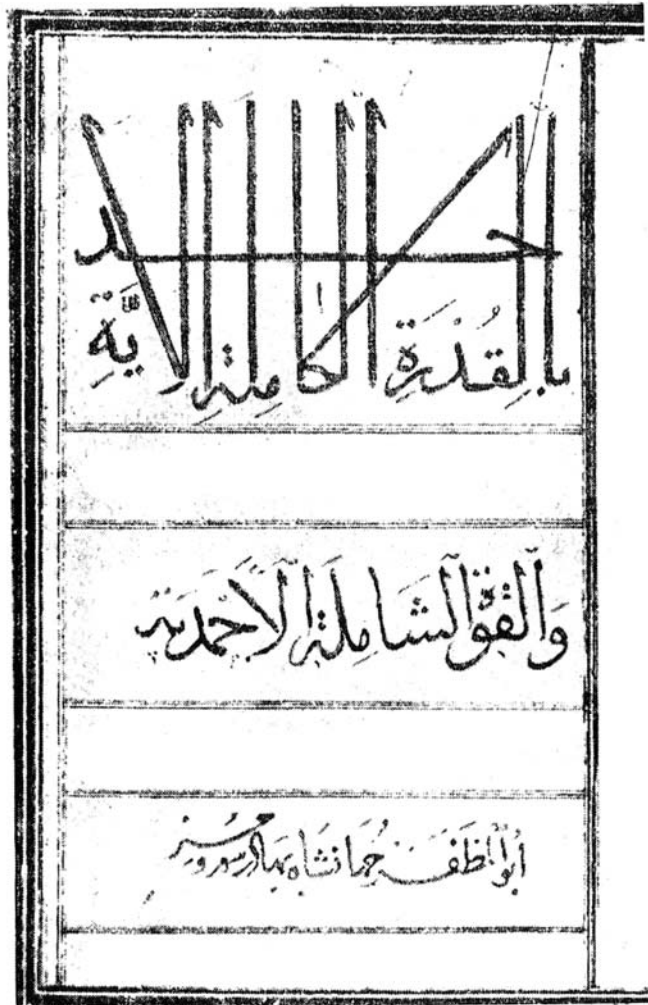 بِالقُدْرَةِ الكامِلَةِ الاحدِيَّةِ
وَالْقُوَّةِ الشَامِلَةِ الْاَحْمَدِيَّة
ابوالمظفر جهانشاه بهادر